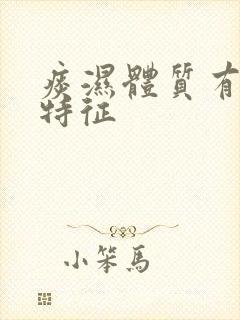 痰濕體質有
特征
小笨馬